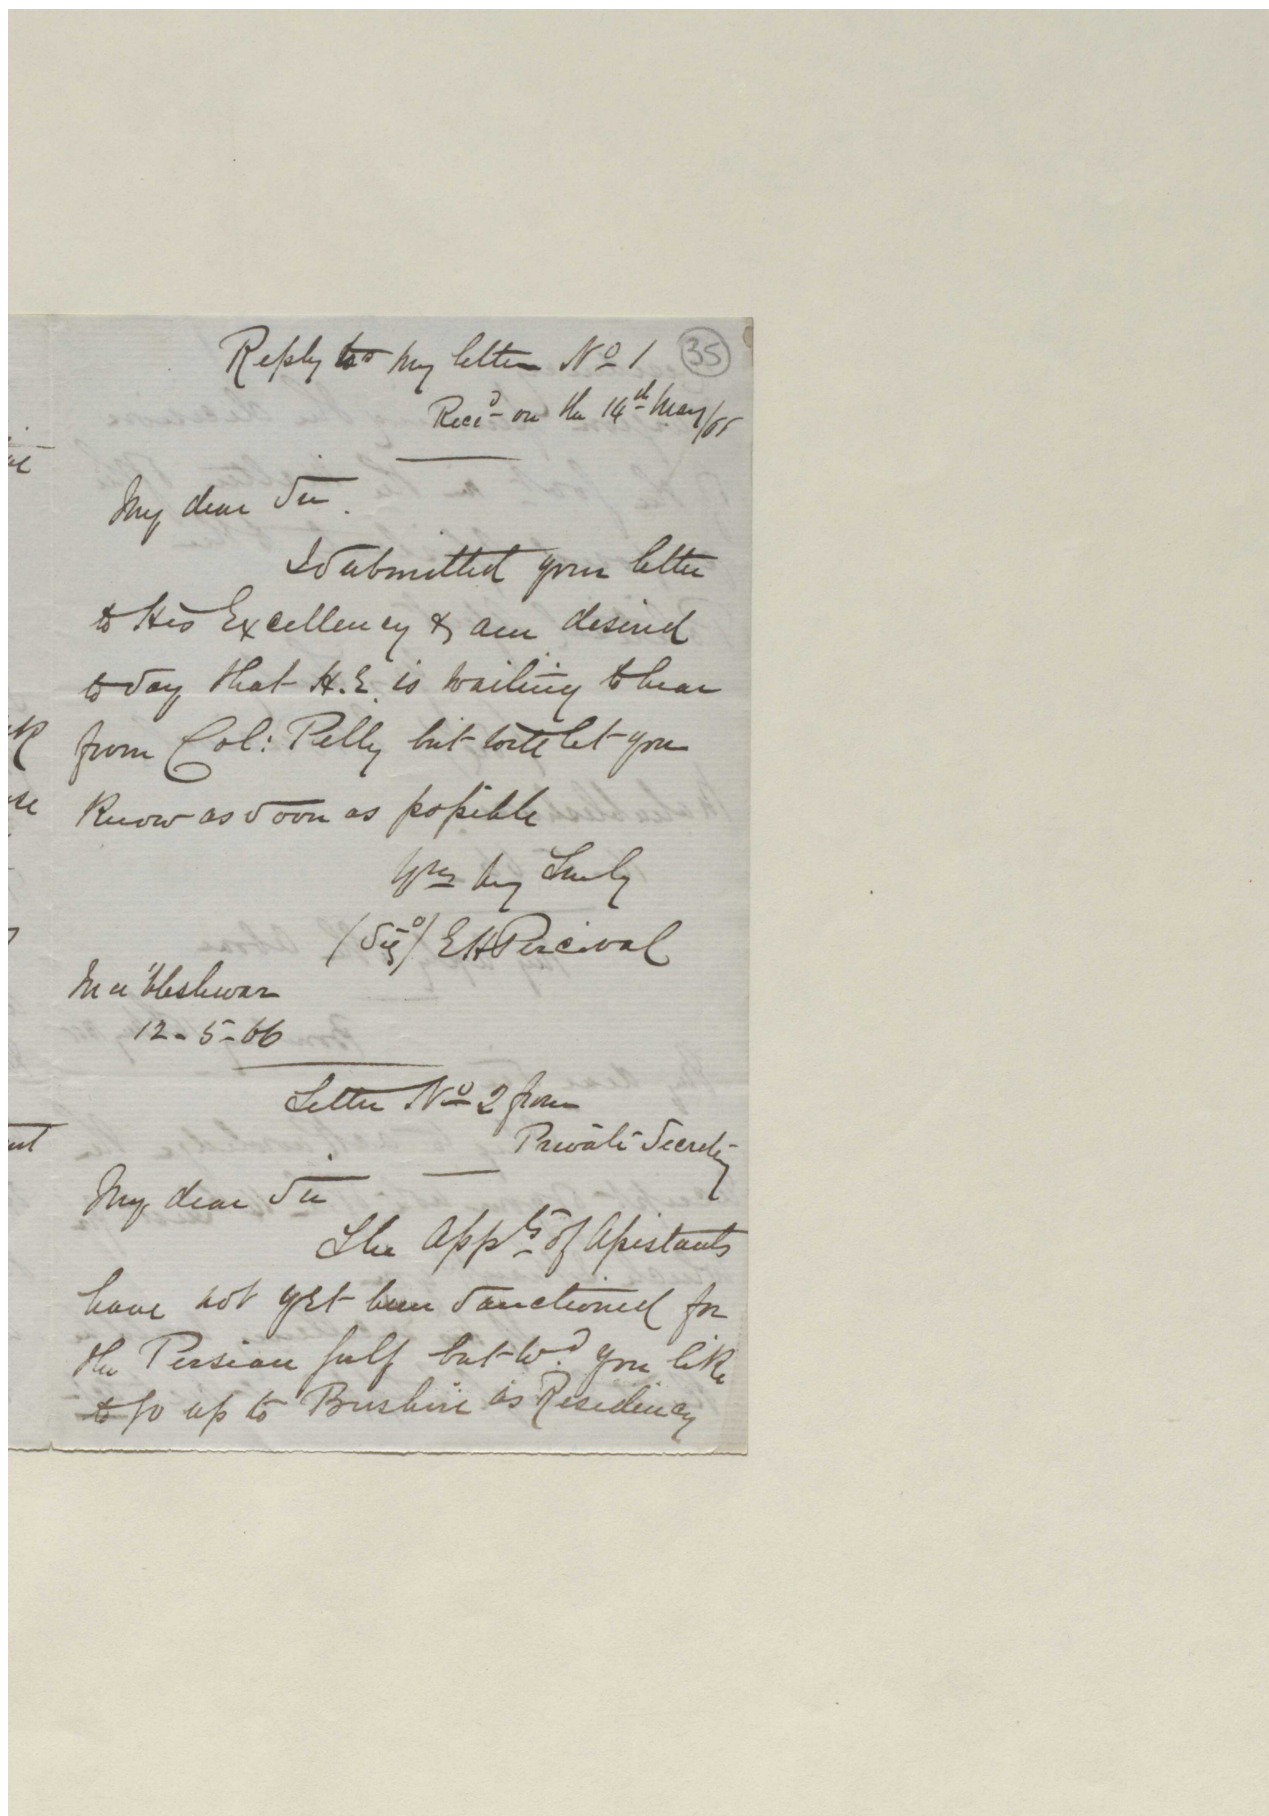 35
Reply to my letter No 1
Recd on the 14th May/66
My dear Sir.
I submitted your letter
to His Excellency & am desired
to say that H.E. is waiting to hear
from Col: Pelly but will let you
know as soon as possible
Yrs vy Truly
(Sigd) EH Percival
Ma'bleshwar
12-5-66
Letter No 2 from
Private Secretary
My dear Sir
The Appts of Assistants
have not yet been sanctioned for
the Persian Gulf but wd you like
to go up to Bushire as Residency